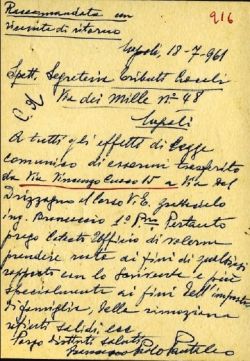 Raccomandata con
ricevuta di ritorno
916
Napoli, 18-7-961
Spett. Segreteria Tributi Locali
Via dei Mille n° 48
Napoli
A tutti gli effetti di legge
comunico di essermi trasferito
da Via Vincenzo Cuoco 15 a Via del
Parco
ing. 1° Pertanto
prego codesto Ufficio di volerne
prendere nota ai fini di qualsiasi
rapporto con lo scrivente e più
specialmente ai fini dell'imposta
di famiglia, della rimozione
rifiuti solidi ecc
Porgo distinti saluti